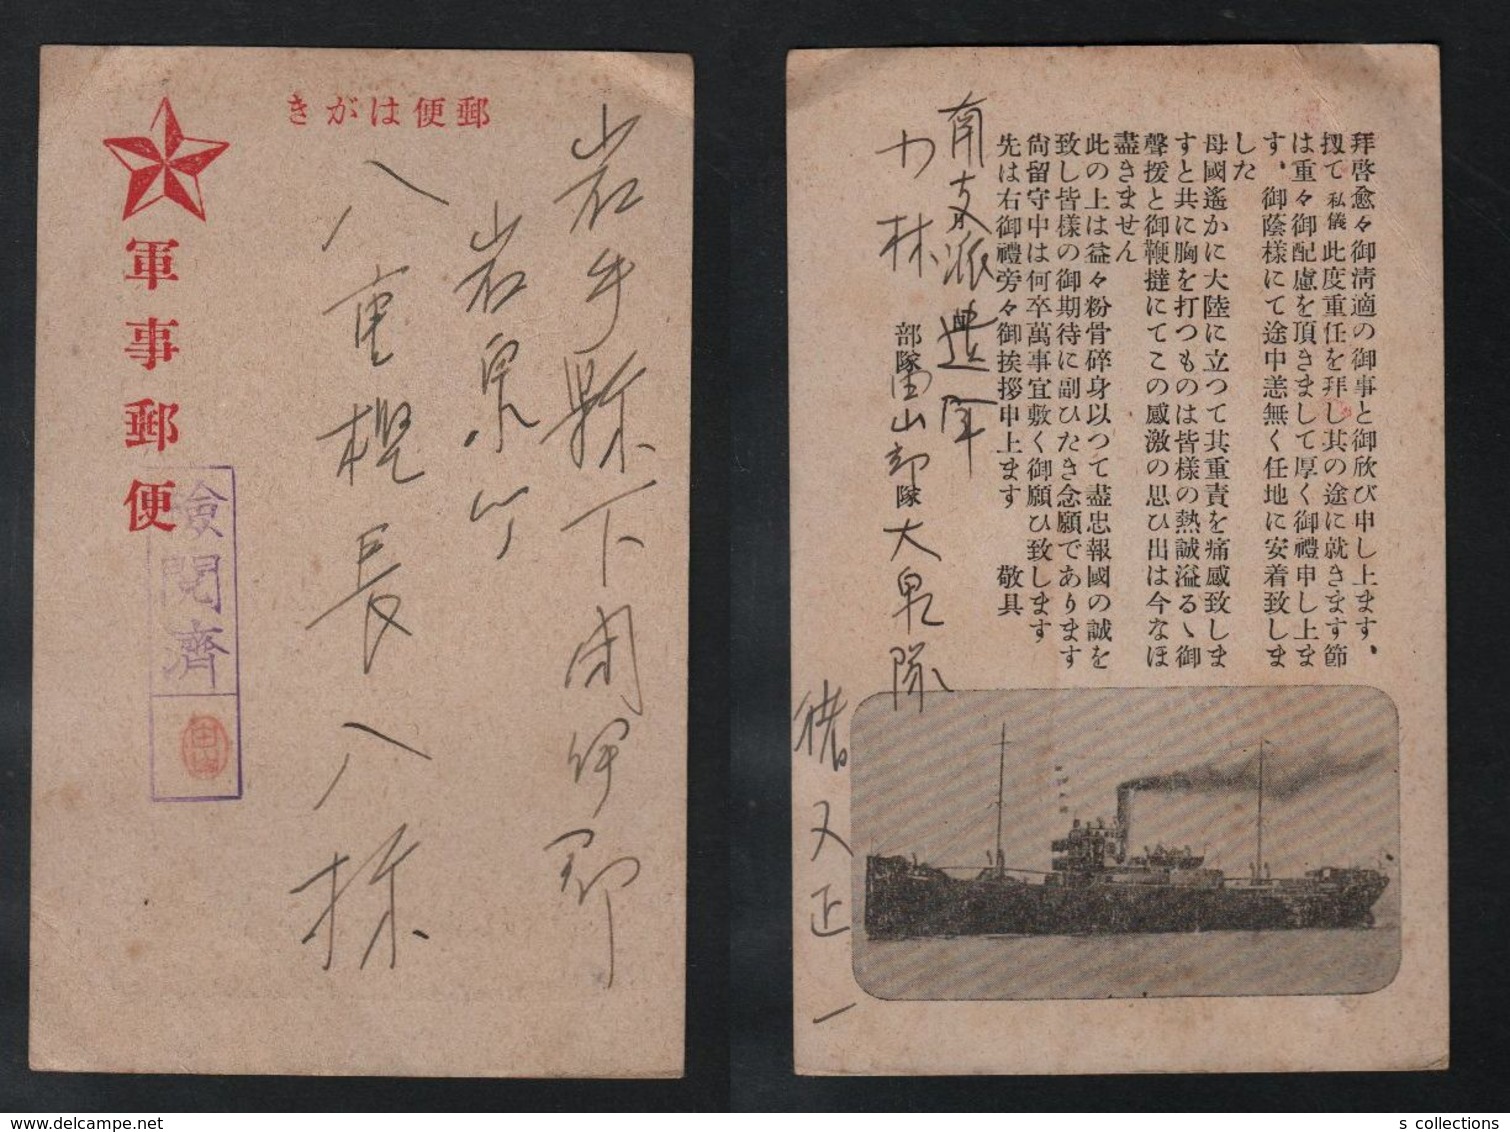 郵便はがき
軍事郵便
検閲濟
岩手縣下閉伊郡
岩泉
八重樫長八様
拜啓愈々御淸適の御事と御欣び申し上ます、
扨て私儀此度重任を拜し其の途に就きます節
は重々御配慮を頂きまして厚く御禮申し上ま
す、御蔭樣にて途中恙無く任地に安着致しま
した
母國遙かに大陸に立つて其重責を痛感致しま
すと共に胸を打つものは皆樣の熱誠溢るゝ御
聲援と御鞭撻にてこの感激の思ひ出は今なほ
盡きません
此の上は益々粉骨碎身以つて盡忠報國の誠を
致し皆樣の御期待に副ひたき念願であります
尙留守中は何卒萬事宜敷く御願ひ致します
先は右御禮旁々御挨拶申上ます 敬具
南支派遣軍
部隊畠山部隊大泉隊
又正一
s collections
www.delcampe.net